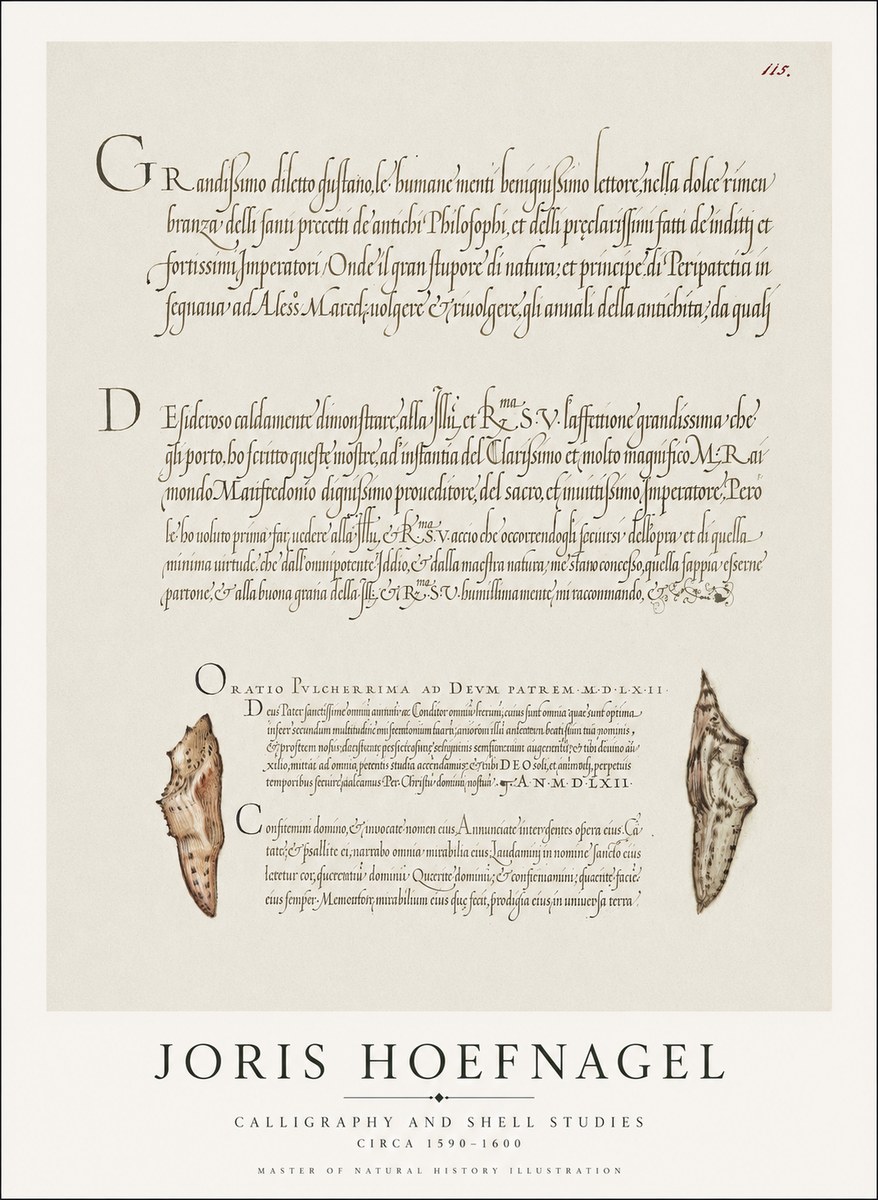 115.
GRandißimo diletto gustano, le humane menti benignißimo lettore, nella dolce rimen
branza delli santi precetti de antichi Philosophi, et delli pręclarissimi fatti de inditti et
fortissimi Imperatori / Onde il gran stupore di natura, et principe di Peripatetici in
seguaua ad Aless.º Maced, uolgere & riuolgere, gli annali della antichita, da quali
DEsideroso caldamente dimonstrare, alla Illu, et R.ma S. V. l'affettione grandissima che
gli porto. ho scritto queste mostre, ad instantia del Clarißimo et molto magnifico M: Rai
mondo Manfredonio dignißimo proueditore, del sacro, et inuittißimo, Imperatore, Però
le ho uoluto prima far uedere alla Illu, & R.ma S. V. accio che occorrendogli seruirsi dell'opra et di quella
minima virtude, che dall'omnipotente Iddio, & dalla maestra natura, me stano conceßo, quella sappia eßerne
partone, & alla buona grana della Ill: & R.ma S. V. humillimamente, mi raccommando, &
ORATIO PVLCHERRIMA AD DEVM PATREM · M · D · L · X · I I ·
Deus Pater sanctissime omniū ac Conditor omniū herum, cuius sunt omnia quae sunt optima
secundum multitudinē illū tua nominis,
& & tibi
xilio, ad omnia, petentis studia accendamus, & tibi DEO soli, et perpetuis
temporibus Per Christū dominū A · N · M · D · LXII ·
Confitemini domino, & inuocate nomen eius, Annunciate inter gentes opera eius. Cā
tate, & psallite ei, narrabo omnia mirabilia eius, Laudamini in nomine sancto eius
letetur cor, dominū Querite dominū, & confirmamini, faciē
eius semper. mirabilium eius quę fecit, prodigia eius, in uniuersa terra
JORIS HOEFNAGEL
CALLIGRAPHY AND SHELL STUDIES
CIRCA 1590–1600
MASTER OF NATURAL HISTORY ILLUSTRATION